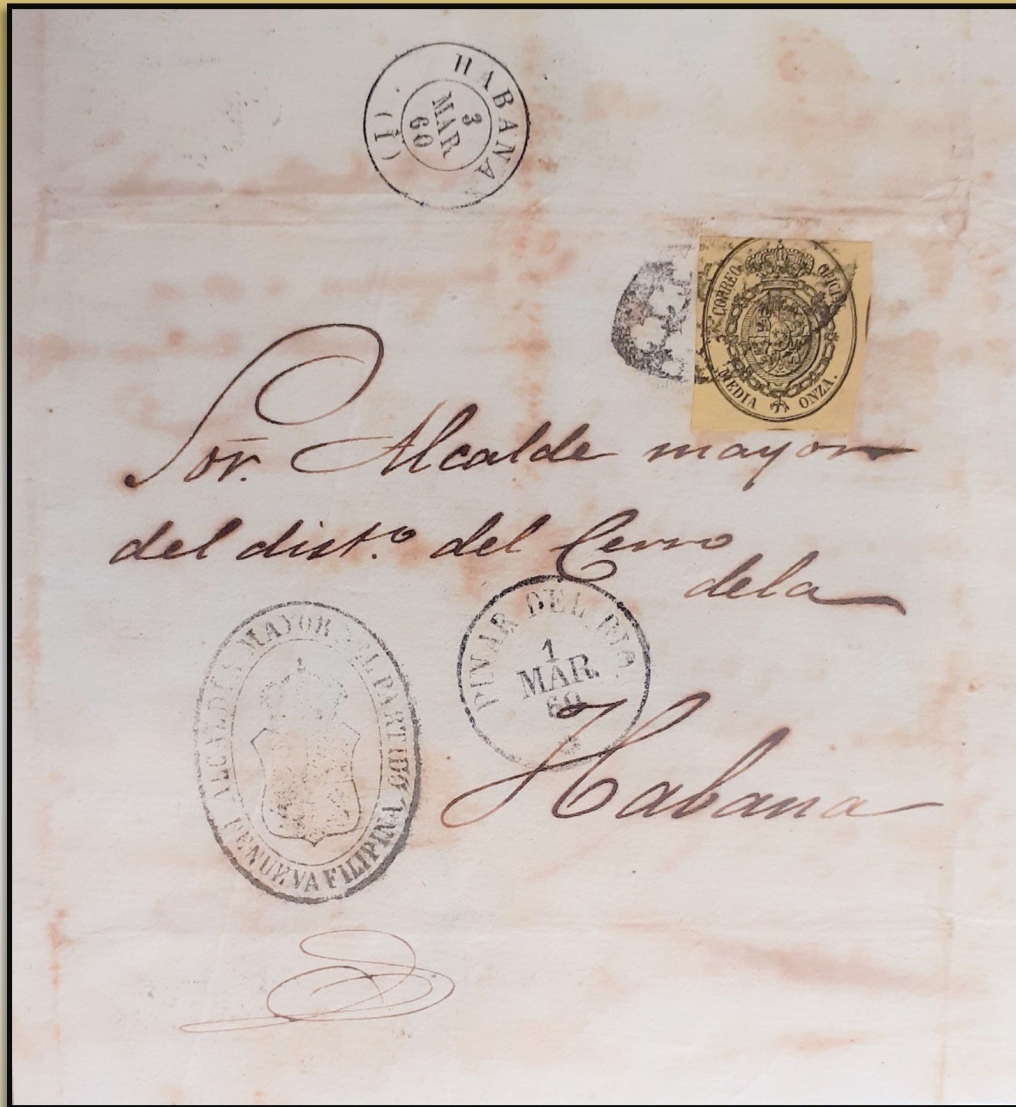 HABANA
3
MAR
60
(1)
CORREO OFICIAL
MEDIA ONZA.
Sor. Alcalde mayor
del dist.º del Cerro
dela
Habana
PINAR DEL RIO
1
MAR.
60
ALCALDIA MAYOR DEL PARTIDO
DE NUEVA FILIPINA